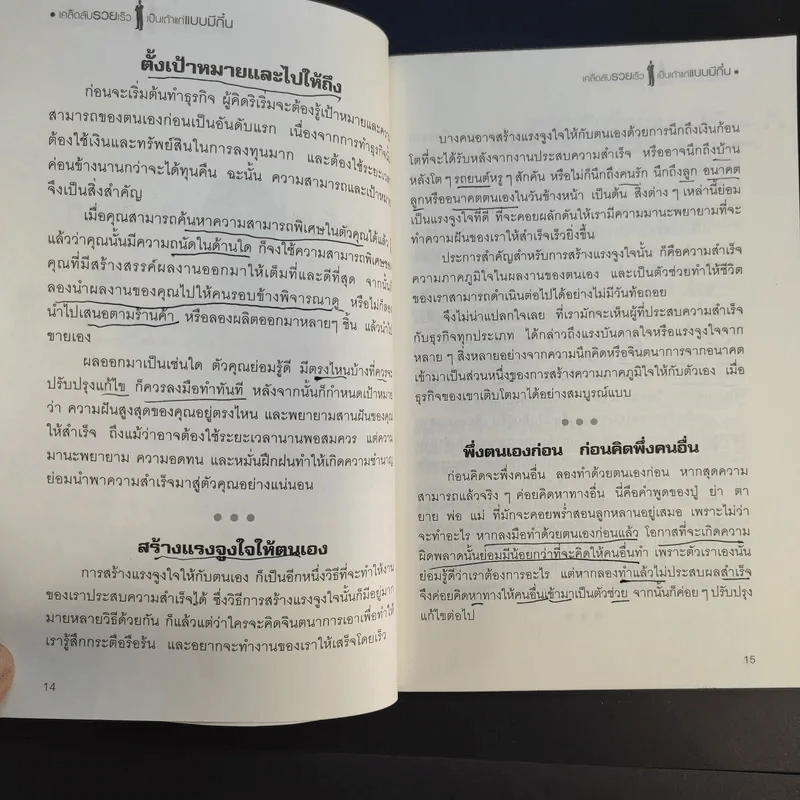 เคล็ดลับรวยเร็ว เป็นเถ้าแก่แบบมีกึ๋น
ตั้งเป้าหมายและไปให้ถึง
ก่อนจะเริ่มต้นทำธุรกิจ ผู้คิดริเริ่มจะต้องรู้เป้าหมายและความ
สามารถของตนเองก่อนเป็นอันดับแรก เนื่องจากการทำธุรกิจ
ต้องใช้เงินและทรัพย์สินในการลงทุนมาก และต้องใช้ระยะเวลา
ค่อนข้างนานกว่าจะได้ทุนคืน ฉะนั้น ความสามารถและเป้าหมาย
จึงเป็นสิ่งสำคัญ
เมื่อคุณสามารถค้นหาความสามารถพิเศษในตัวคุณได้แล้ว
แล้วว่าคุณนั้นมีความถนัดในด้านใด ก็จงใช้ความสามารถพิเศษของ
คุณที่มีสร้างสรรค์ผลงานออกมาให้เต็มที่และดีที่สุด จากนั้น
ลองนำผลงานของคุณไปให้คนรอบข้างพิจารณาดู หรือไม่ก็ลอง
นำไปเสนอตามร้านค้า หรือลองผลิตออกมาหลายๆ ชิ้น แล้วนำไป
ขายเอง
ผลออกมาเป็นเช่นใด ตัวคุณย่อมรู้ดี มีตรงไหนบ้างที่ควรจะ
ปรับปรุงแก้ไข ก็ควรลงมือทำทันที หลังจากนั้นก็กำหนดเป้าหมาย
ว่า ความฝันสูงสุดของคุณอยู่ตรงไหน และพยายามสานฝันของคุณ
ให้สำเร็จ ถึงแม้ว่าอาจต้องใช้ระยะเวลานานพอสมควร แต่ความ
มานะพยายาม ความอดทน และหมั่นฝึกฝนทำให้เกิดความชำนาญ
ย่อมนำพาความสำเร็จมาสู่ตัวคุณอย่างแน่นอน
สร้างแรงจูงใจให้ตนเอง
การสร้างแรงจูงใจให้กับตนเอง ก็เป็นอีกหนึ่งวิธีที่จะทำให้งาน
ของเราประสบความสำเร็จได้ ซึ่งวิธีการสร้างแรงจูงใจนั้นก็มีอยู่มาก
มายหลายวิธีด้วยกัน ก็แล้วแต่ว่าใครจะคิดจินตนาการเอาเพื่อทำให้
เรารู้สึกกระตือรือร้น และอยากจะทำงานของเราให้เสร็จโดยเร็ว
14
เคล็ดลับรวยเร็ว เป็นเถ้าแก่แบบมีกึ๋น
บางคนอาจสร้างแรงจูงใจให้กับตนเองด้วยการนึกถึงเงินก้อน
โตที่จะได้รับหลังจากงานประสบความสำเร็จ หรืออาจนึกถึงบ้าน
หลังโตๆ รถยนต์หรูๆ สักคัน หรือไม่ก็นึกถึงคนรัก นึกถึงลูก อนาคต
ลูกหรืออนาคตตนเองในวันข้างหน้า เป็นต้น สิ่งต่างๆ เหล่านี้ย่อม
เป็นแรงจูงใจที่ดี ที่จะคอยผลักดันให้เรามีความมานะพยายามที่จะ
ทำความฝันของเราให้สำเร็จเร็วยิ่งขึ้น
ประการสำคัญสำหรับการสร้างแรงจูงใจนั้น ก็คือความสำเร็จ
ความภาคภูมิใจในผลงานของตนเอง และเป็นตัวช่วยทำให้ชีวิต
ของเราสามารถดำเนินต่อไปได้อย่างไม่มีวันท้อถอย
จึงไม่น่าแปลกใจเลย ที่เรามักจะเห็นผู้ที่ประสบความสำเร็จ
กับธุรกิจทุกประเภท ได้กล่าวถึงแรงบันดาลใจหรือแรงจูงใจจาก
หลายๆ สิ่งหลายอย่างจากความนึกคิดหรือจินตนาการจากอนาคต
เข้ามาเป็นส่วนหนึ่งของการสร้างความภาคภูมิใจให้กับตัวเอง เมื่อ
ธุรกิจของเขาเติบโตมาได้อย่างสมบูรณ์แบบ
พึ่งตนเองก่อน ก่อนคิดพึ่งคนอื่น
ก่อนคิดจะพึ่งคนอื่น ลองทำด้วยตนเองก่อน หากสุดความ
สามารถแล้วจริงๆ ค่อยคิดหาทางอื่น นี่คือคำพูดของปู่ ย่า ตา
ยาย พ่อ แม่ ที่มักจะคอยพร่ำสอนลูกหลานอยู่เสมอ เพราะไม่ว่า
จะทำอะไร หากลงมือทำด้วยตนเองก่อนแล้ว โอกาสที่จะเกิดความ
ผิดพลาดนั้นย่อมมีน้อยกว่าที่จะคิดให้คนอื่นทำ เพราะตัวเราเองนั้น
ย่อมรู้ดีว่าเราต้องการอะไร แต่หากลองทำแล้วไม่ประสบผลสำเร็จ
จึงค่อยคิดหาทางให้คนอื่นเข้ามาเป็นตัวช่วย จากนั้นก็ค่อยๆ ปรับปรุง
แก้ไขต่อไป
15